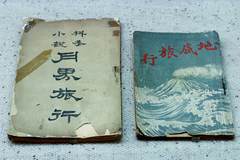 科學
小說
月界旅行
地底旅行